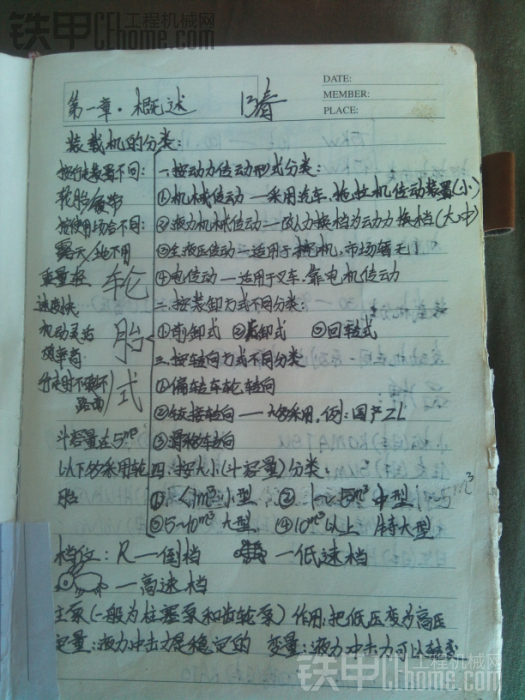 铁甲工程机械网
Cehome.com
DATE:
MEMBER:
PLACE:
第一章·概述 13春
装载机的分类:
按行走装置不同:
轮胎/履带
按使用场合不同:
露天/地下用
重量轻
速度快
机动灵活
效率高
行走时不破坏
路面
轮胎式
斗容量在5m³
以下多采用轮
胎
一.按动力传动形式分类:
①机械传动—采用汽车、拖拉机传动装置(小)
②液力机械传动—以人力换档为动力换档(大.中)
③全液压传动—适用于挖机,市场暂无
④电传动—适用于叉车,靠电机传动
二.按装卸方式不同分类:
①前卸式 ②后卸式 ③回转式
三.按转向方式不同分类
①偏转车轮转向
②铰接转向——多采用,例:国产ZL
③滑移转向
四:按大小(斗容量)分类:
①:<1m³小型 ②1~5m³中型
③5~10m³大型 ④10m³以上 特大型
档位:R—倒档 —低速档
—高速档
主泵(一般为柱塞泵和齿轮泵)作用:把低压变为高压
定量:液力冲击力是稳定的 变量:液力冲击力可以转变
铁甲工程机械网
Cehome.com